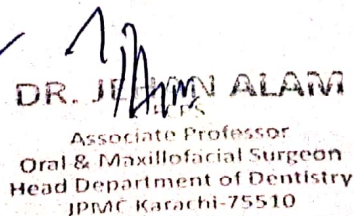 DR. ALAM
FCPS
Associate Professor
Oral & Maxillofacial Surgeon
Head Department of Dentistry
JPMC Karachi-75510